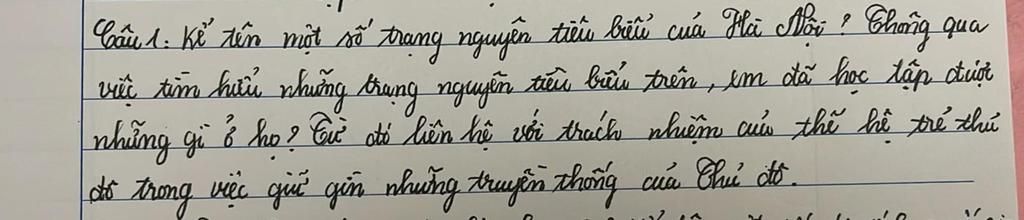 Câu 1: Kể tên một số trạng nguyên tiêu biểu của Hà Nội? Thông qua
việc tìm hiểu những trạng nguyên tiêu biểu trên, em đã học tập được
những gì ở họ? Từ đó liên hệ với trách nhiệm của thế hệ trẻ thủ
đô trong việc giữ gìn những truyền thống của Thủ đô.